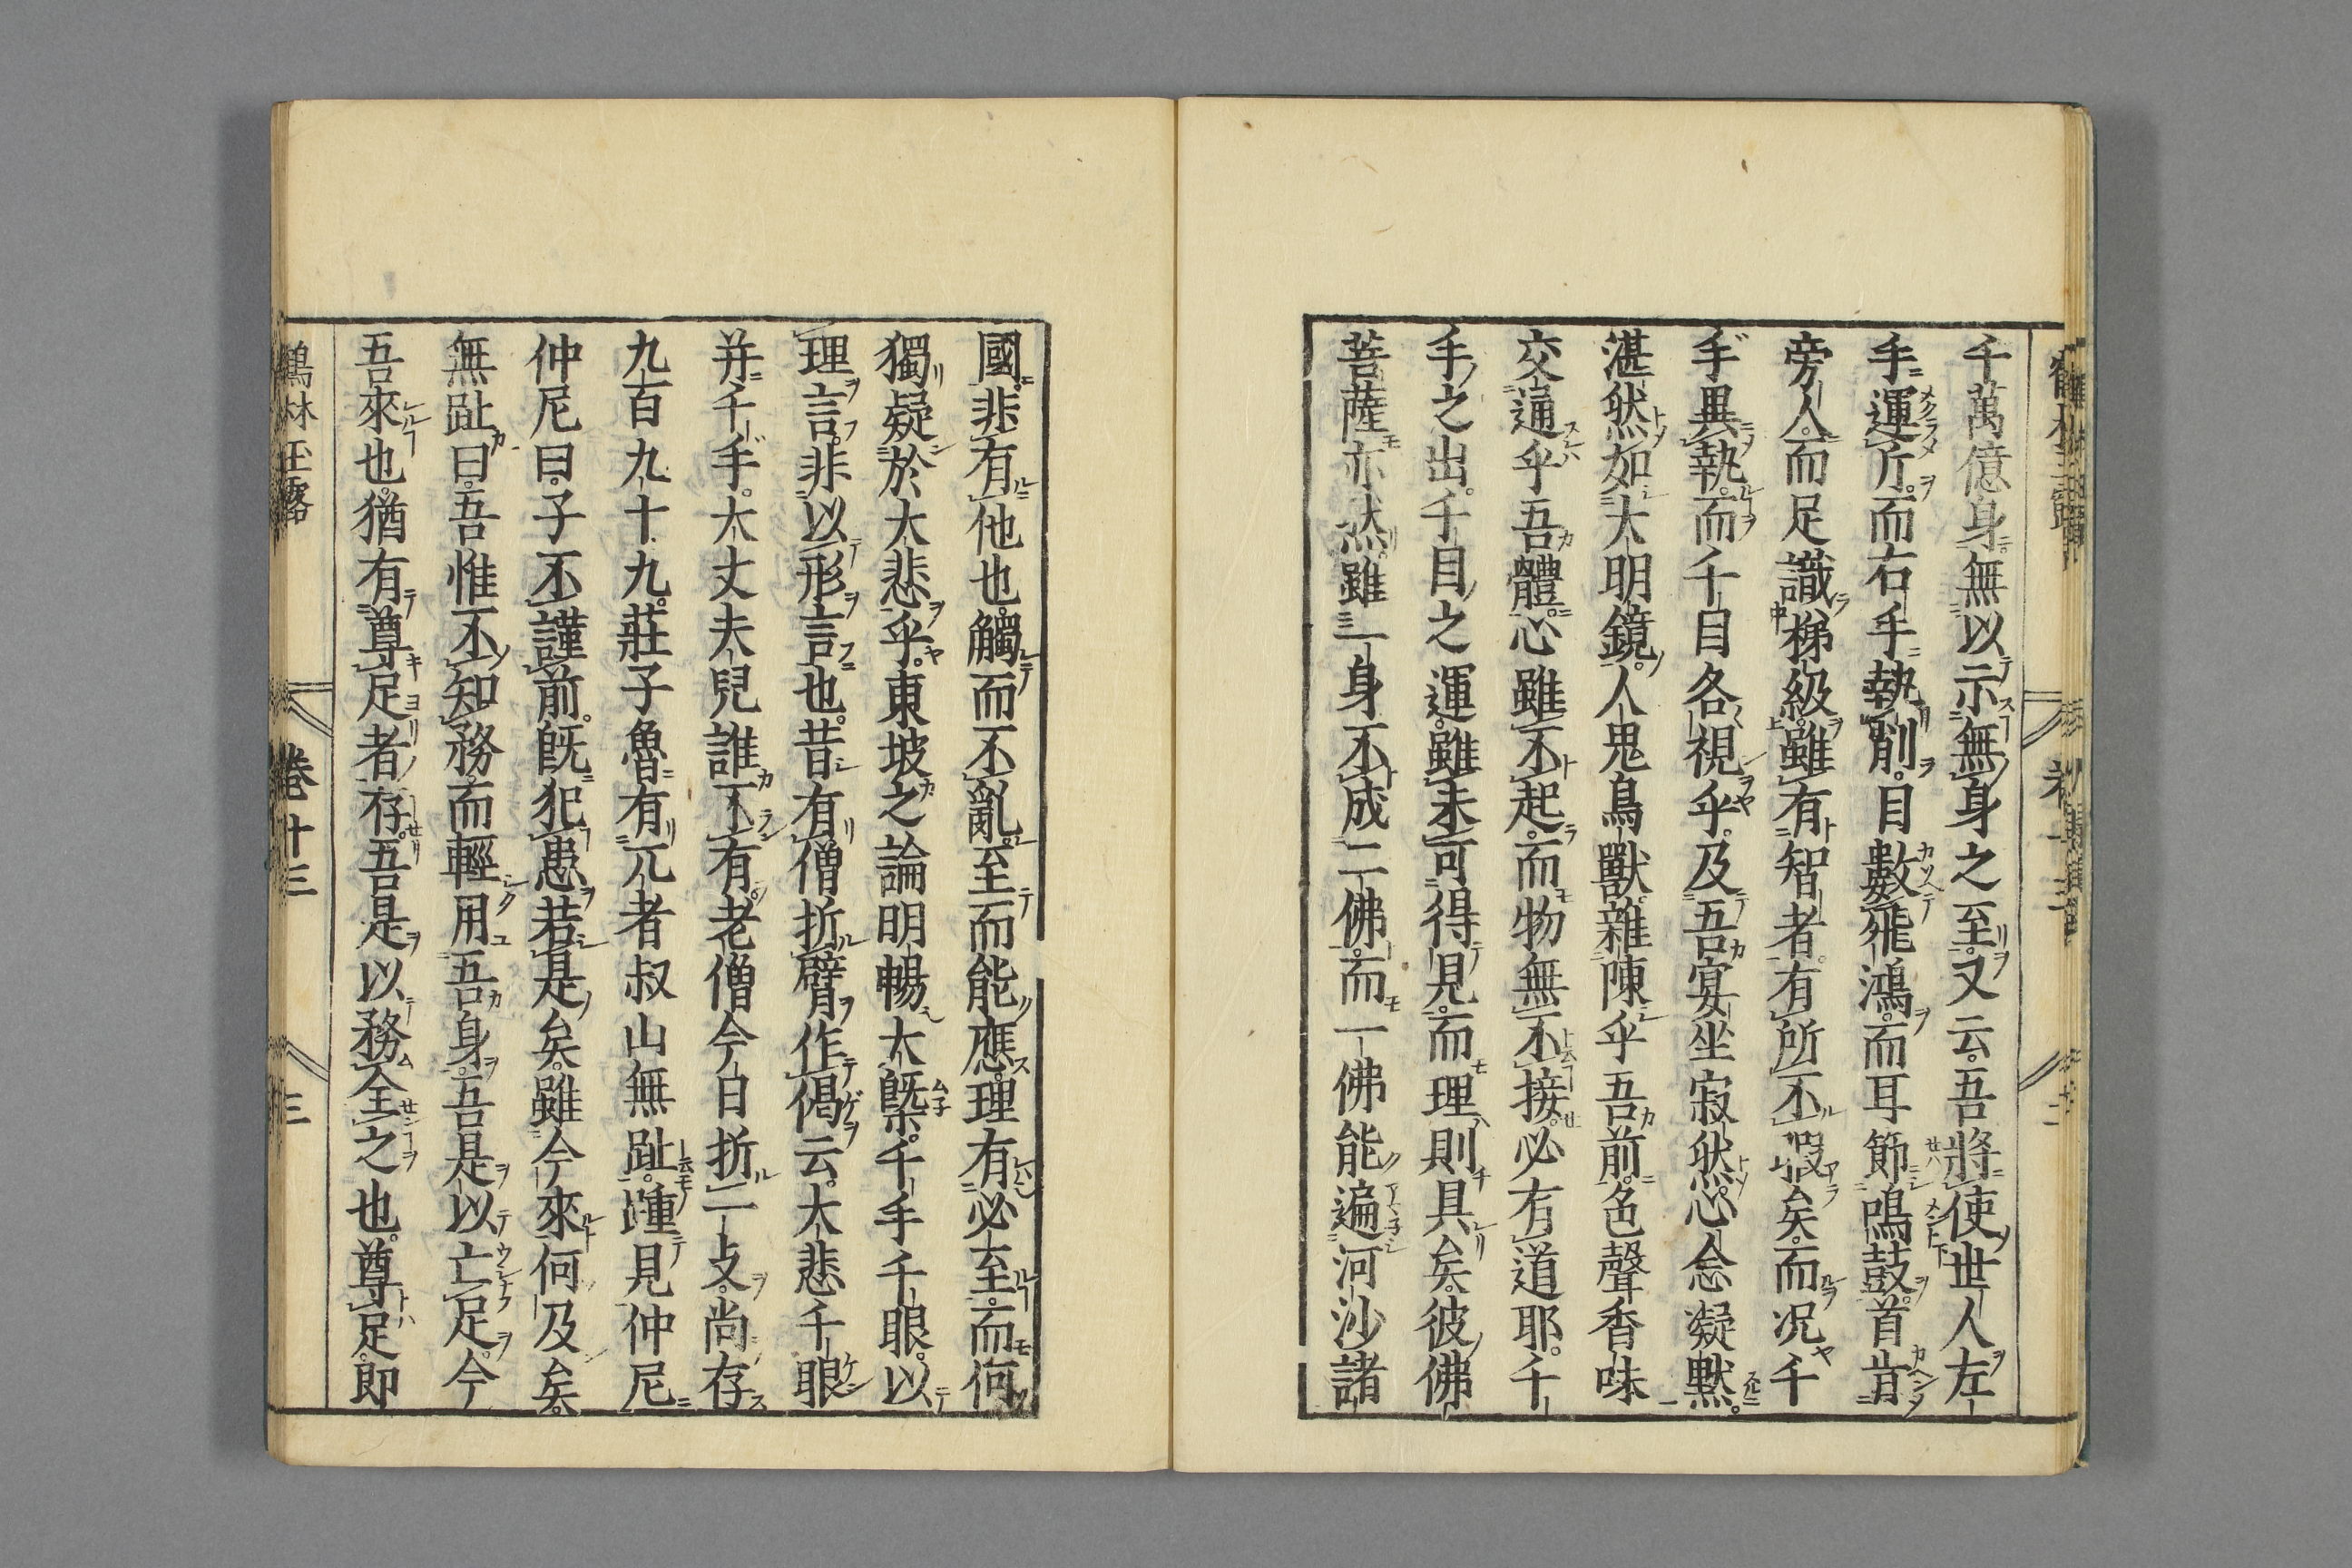 千萬億身無以示無身之至又云吾將使世人左
手運斤而右手執削目數飛鴻而耳節鳴鼓首肯
旁人而足識梯級雖有智者有所不暇矣而況千
手異執而千目各視乎及吾宴坐寂然心念凝默
湛然如大明鏡人鬼鳥獸雜陳乎吾前色聲香味
交遍乎吾體心雖不起而物無不接必有道耶千
手之出千目之運雖未可得見而理則具矣彼佛
菩薩亦然雖一身不成二佛而一佛能遍河沙諸
國非有他也觸而不亂至而能應理有必至而何
獨疑於大悲乎東坡之論明暢大槩千手千眼以
理言非以形言也昔有僧折臂作偈云大悲千眼
并千手大丈夫兒誰不有老僧今日折一支尚存
九百九十九莊子魯有兀者叔山無趾踵見仲尼
仲尼曰子不謹前既犯患若是矣雖今來何及矣
無趾曰吾惟不知務而輕用吾身吾是以亡足今
吾來也猶有尊足者存吾是以務全之也尊足即
鶴林玉露 卷十三 三